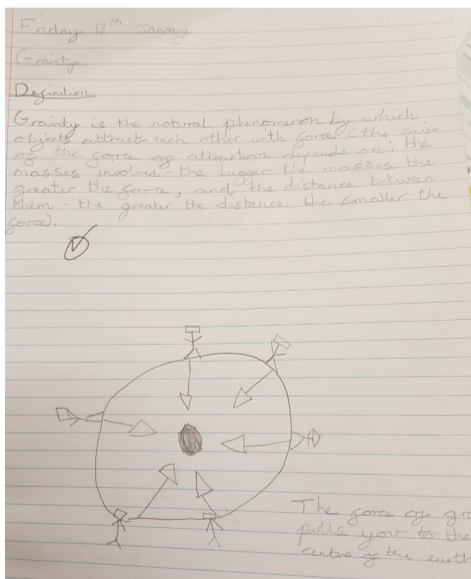 Friday 12th January
Gravity
Definition
Gravity is the natural phenomenon by which
objects attract each other with force (the size
of the force of attraction depends on: the
masses involved - the bigger the masses the
greater the force, and the distance between
them - the greater the distance the smaller the
force).
The force of gra
pulls you to the
centre of the earth